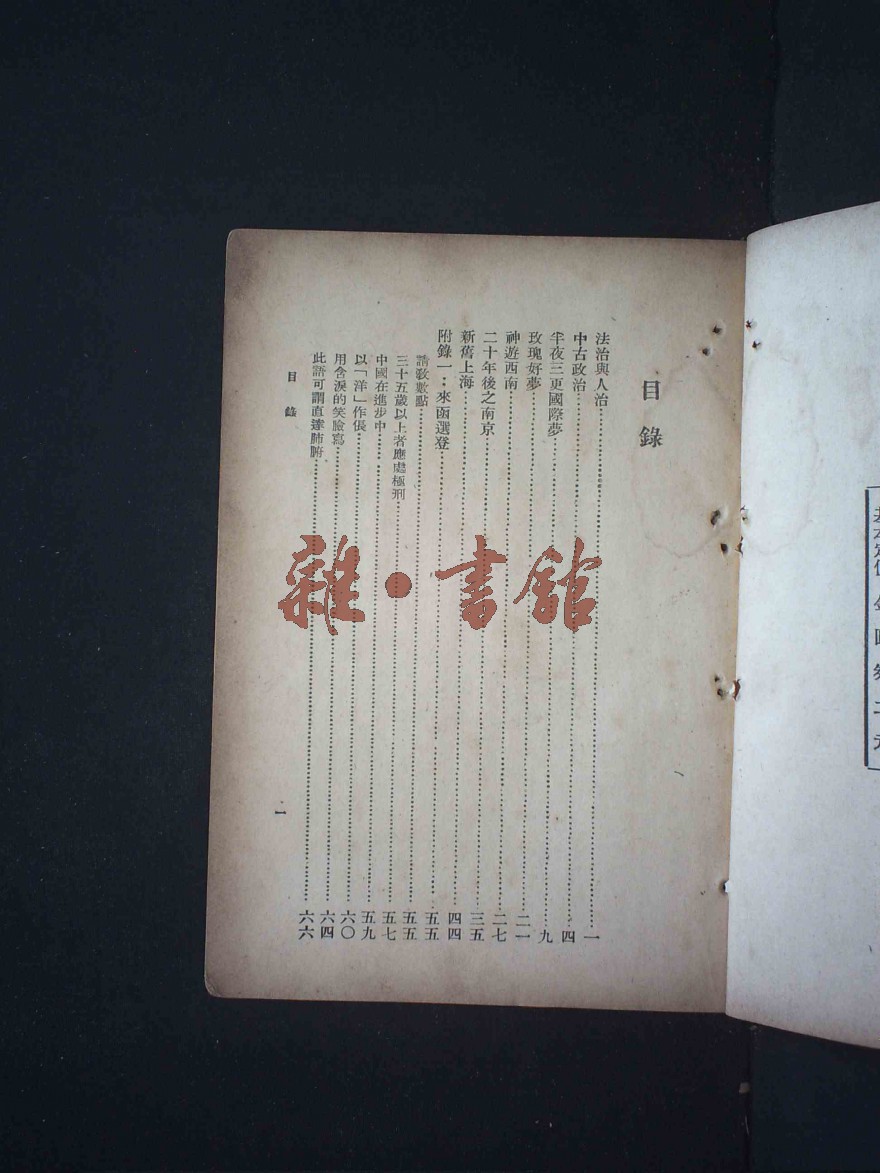 基本定價 金圓券二元
目錄
法治與人治……一
中古政治……四
半夜三更國際夢……九
玫瑰好夢……二一
神遊西南……二七
二十年後之南京……三五
新舊上海……四四
附錄一：來函選登……五五
請教數點……五五
三十五歲以上者應處極刑……五七
中國在進步中……五九
以「洋」作倀……六〇
用含淚的笑臉寫……六四
此語可謂直達肺腑……六六
目錄
一
雜·書館